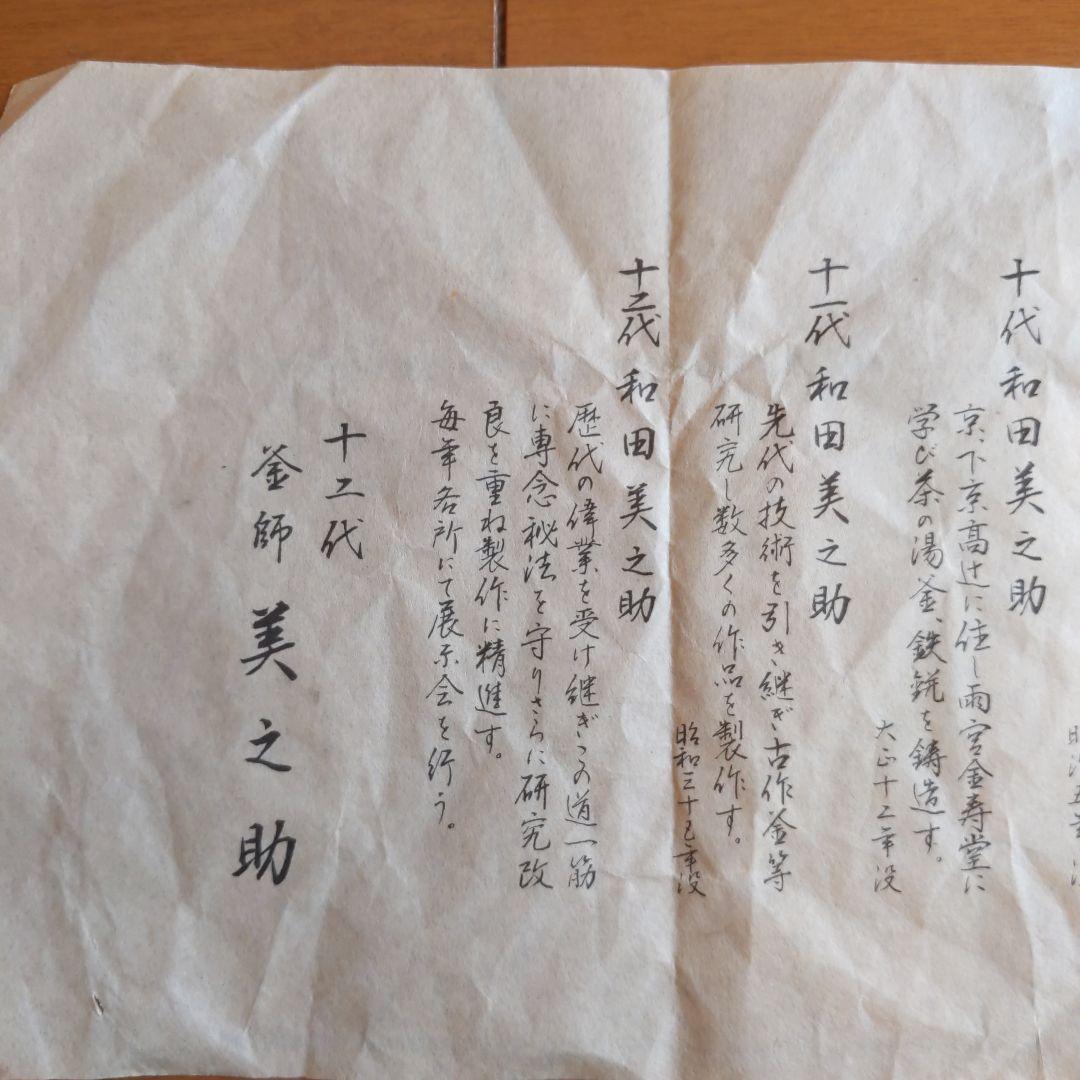 明治五年没
十代 和田美之助
京、下京高辻に住し雨宮金寿堂に
学び茶の湯釜、鉄銚を鋳造す。
大正十二年没
十一代 和田美之助
先代の技術を引き継ぎ古作釜等
研究し数多くの作品を製作す。
昭和三十七年没
十二代 和田美之助
歴代の偉業を受け継ぎこの道一筋
に専念秘法を守りさらに研究改
良を重ね製作に精進す。
毎年各所にて展示会を行う。
十二代
釜師 美之助